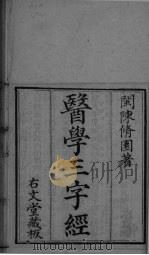 閩陳脩園著
醫學三字經
右文堂藏板